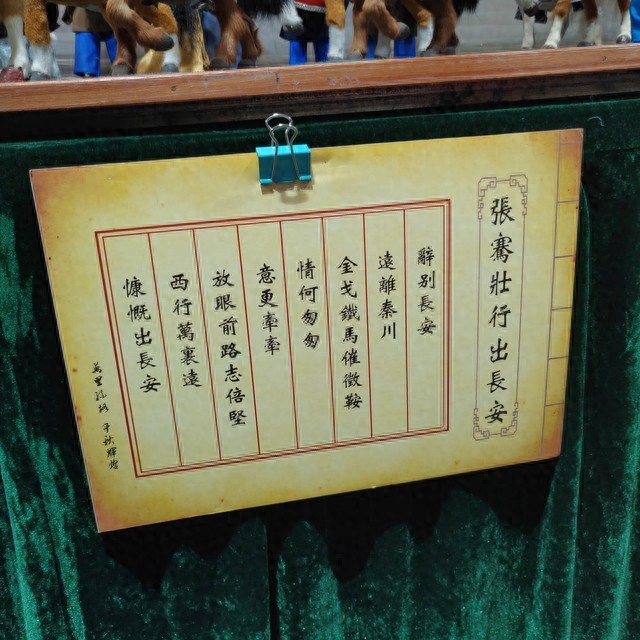 張騫壯行出長安
辭別長安
遠離秦川
金戈鐵馬催徵鞍
情何匆匆
意更牽牽
放眼前路志倍堅
西行萬裏遠
慷慨出長安